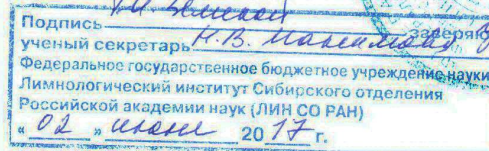 Подпись заверяю
ученый секретарь Н.В. Максимова
Федеральное государственное бюджетное учреждение науки
Лимнологический институт Сибирского отделения
Российской академии наук (ЛИН СО РАН)
« 02 » июня 2017 г.